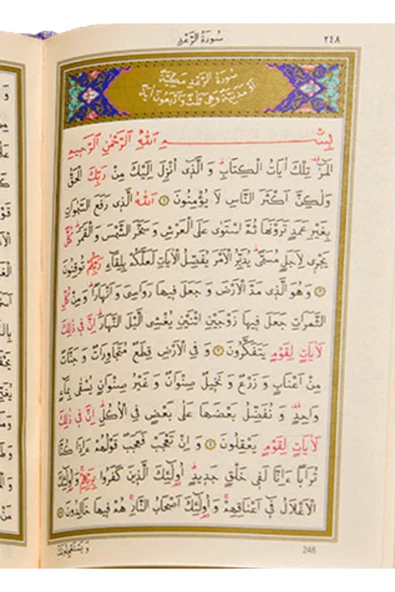 سورة الرعد ٢٤٨
سورة الرعد مكية
او مدنية وهي ثلث واربعون آية
بسم الله الرحمن الرحيم
المر تلك ايات الكتاب و الذي انزل اليك من ربك الحق
ولكن اكثر الناس لا يؤمنون ١ الله الذي رفع السموات
بغير عمد ترونها ثم استوى على العرش و سخر الشمس و القمر كل
يجري لاجل مسمى يدبر الامر يفصل الايات لعلكم بلقاء ربكم توقنون
٢ و هو الذي مد الارض و جعل فيها رواسي و انهارا و من كل
الثمرات جعل فيها زوجين اثنين يغشي الليل النهار ان في ذلك
لايات لقوم يتفكرون ٣ و في الارض قطع متجاورات و جنات
من اعناب و زرع و نخيل صنوان و غير صنوان يسقى بماء
واحد و نفضل بعضها على بعض في الاكل ان في ذلك
لايات لقوم يعقلون ٤ و ان تعجب فعجب قولهم ءاذا كنا
ترابا ءانا لفي خلق جديد اولئك الذين كفروا بربهم و اولئك
الاغلال في اعناقهم و اولئك اصحاب النار هم فيها خالدون ٥
ويستعجلونك 248